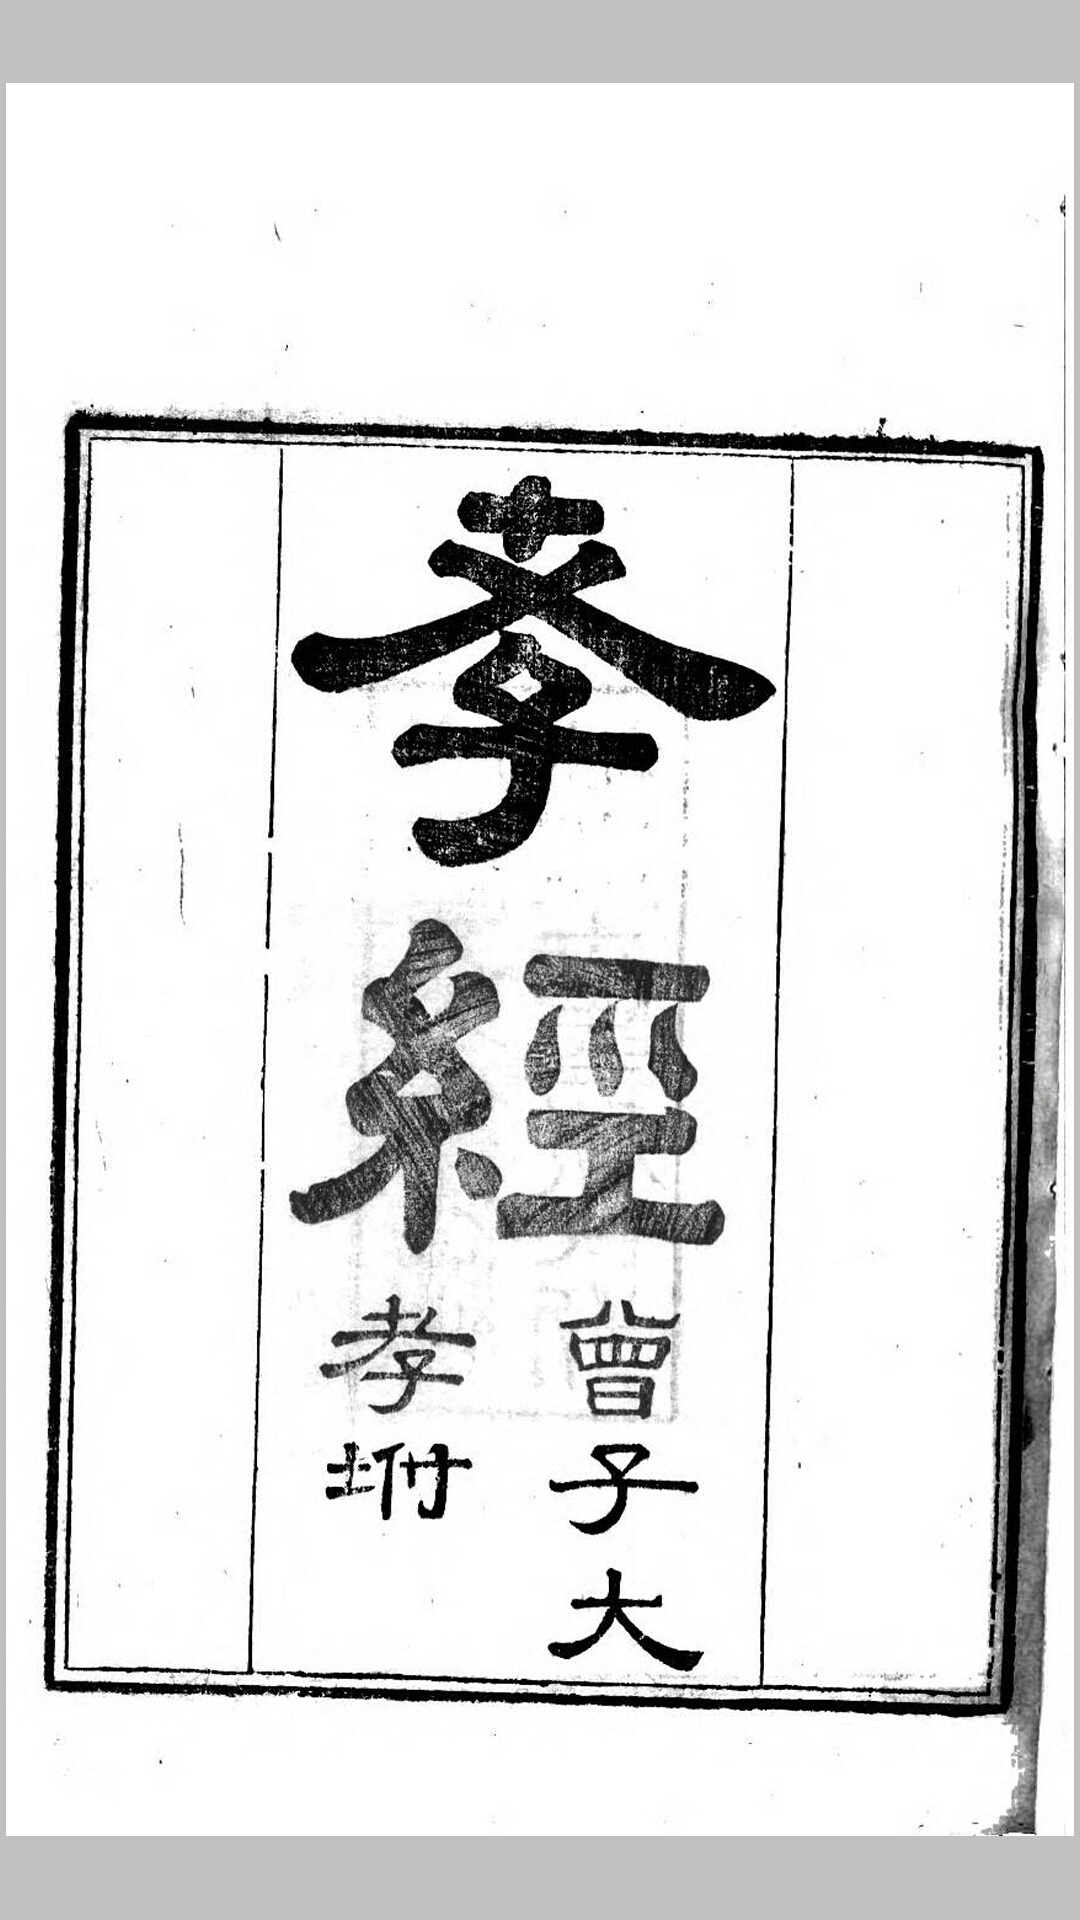 孝經
曾子大
孝坿